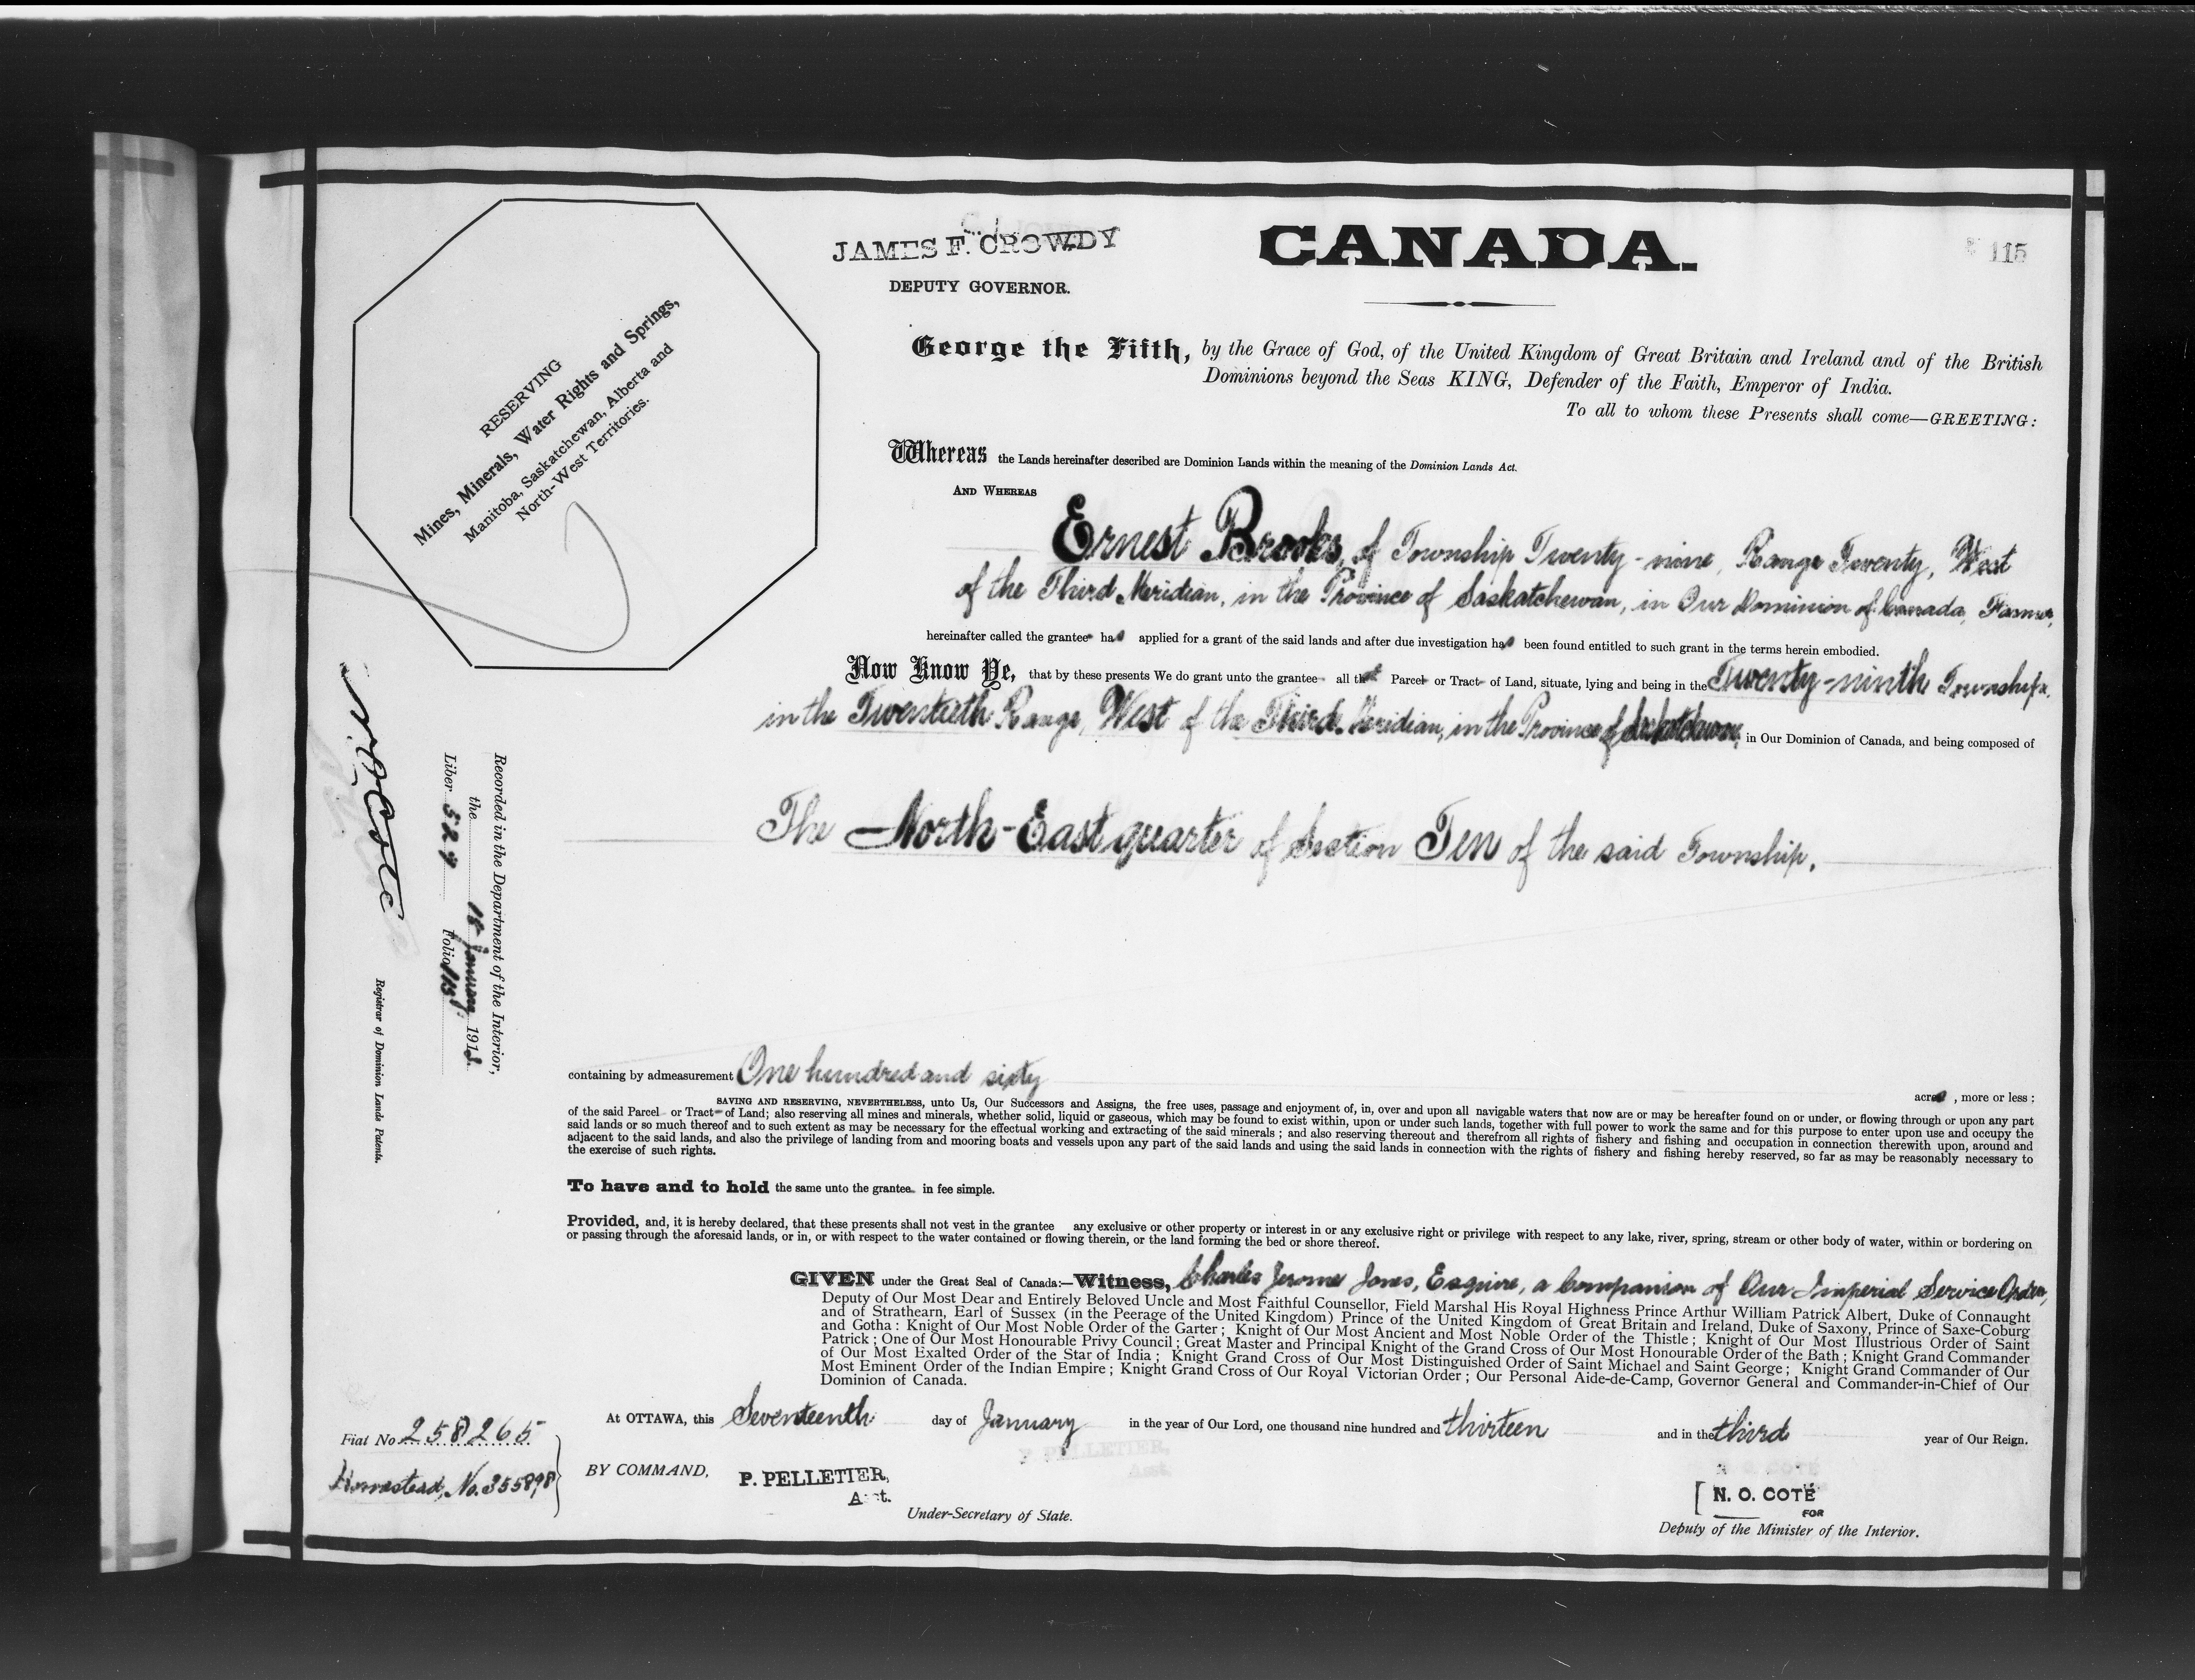 JAMES F. CROWDY
DEPUTY GOVERNOR.
CANADA.
115
RESERVING
Mines, Minerals, Water Rights and Springs,
Manitoba, Saskatchewan, Alberta and
North-West Territories.
George the Fifth, by the Grace of God, of the United Kingdom of Great Britain and Ireland and of the British
Dominions beyond the Seas KING, Defender of the Faith, Emperor of India.
To all to whom these Presents shall come—GREETING:
Whereas the Lands hereinafter described are Dominion Lands within the meaning of the Dominion Lands Act.
AND WHEREAS
Ernest Brooks, of Township Twenty-nine, Range Twenty, West
of the Third Meridian, in the Province of Saskatchewan, in Our Dominion of Canada, Farmer,
hereinafter called the grantee has applied for a grant of the said lands and after due investigation has been found entitled to such grant in the terms herein embodied.
Now Know Ye, that by these presents We do grant unto the grantee all that Parcel or Tract of Land, situate, lying and being in the Twenty-ninth Township,
in the Twentieth Range, West of the Third Meridian, in the Province of Saskatchewan, in Our Dominion of Canada, and being composed of
The North-East quarter of Section Ten of the said Township.
N. O. Coté
Registrar of Dominion Lands Patents.
Recorded in the Department of the Interior,
the 18 January 1913.
Liber 529 Folio 115
containing by admeasurement One hundred and sixty acres, more or less:
SAVING AND RESERVING, NEVERTHELESS, unto Us, Our Successors and Assigns, the free uses, passage and enjoyment of, in, over and upon all navigable waters that now are or may be hereafter found on or under, or flowing through or upon any part
of the said Parcel or Tract of Land; also reserving all mines and minerals, whether solid, liquid or gaseous, which may be found to exist within, upon or under such lands, together with full power to work the same and for this purpose to enter upon use and occupy the
said lands or so much thereof and to such extent as may be necessary for the effectual working and extracting of the said minerals; and also reserving thereout and therefrom all rights of fishery and fishing and occupation in connection therewith upon, around and
adjacent to the said lands, and also the privilege of landing from and mooring boats and vessels upon any part of the said lands and using the said lands in connection with the rights of fishery and fishing hereby reserved, so far as may be reasonably necessary to
the exercise of such rights.
To have and to hold the same unto the grantee in fee simple.
Provided, and, it is hereby declared, that these presents shall not vest in the grantee any exclusive or other property or interest in or any exclusive right or privilege with respect to any lake, river, spring, stream or other body of water, within or bordering on
or passing through the aforesaid lands, or in, or with respect to the water contained or flowing therein, or the land forming the bed or shore thereof.
GIVEN under the Great Seal of Canada:—Witness, Charles Jerome Jones, Esquire, a Companion of Our Imperial Service Order,
Deputy of Our Most Dear and Entirely Beloved Uncle and Most Faithful Counsellor, Field Marshal His Royal Highness Prince Arthur William Patrick Albert, Duke of Connaught
and of Strathearn, Earl of Sussex (in the Peerage of the United Kingdom) Prince of the United Kingdom of Great Britain and Ireland, Duke of Saxony, Prince of Saxe-Coburg
and Gotha: Knight of Our Most Noble Order of the Garter; Knight of Our Most Ancient and Most Noble Order of the Thistle; Knight of Our Most Illustrious Order of Saint
Patrick; One of Our Most Honourable Privy Council; Great Master and Principal Knight of the Grand Cross of Our Most Honourable Order of the Bath; Knight Grand Commander
of Our Most Exalted Order of the Star of India; Knight Grand Cross of Our Most Distinguished Order of Saint Michael and Saint George; Knight Grand Commander of Our
Most Eminent Order of the Indian Empire; Knight Grand Cross of Our Royal Victorian Order; Our Personal Aide-de-Camp, Governor General and Commander-in-Chief of Our
Dominion of Canada.
At OTTAWA, this Seventeenth day of January in the year of Our Lord, one thousand nine hundred and thirteen and in the third year of Our Reign.
Fiat No 258265
Homestead, No. 355898
BY COMMAND,
P. PELLETIER,
Asst.
Under-Secretary of State.
N. O. COTÉ
FOR
Deputy of the Minister of the Interior.